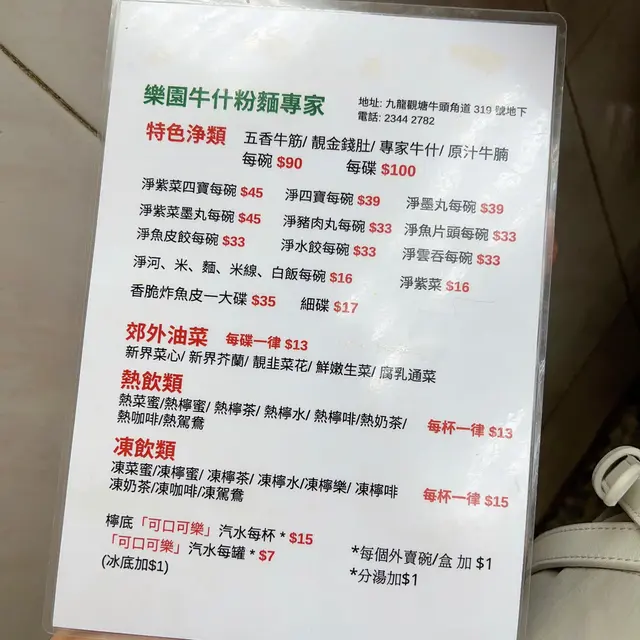 樂園牛什粉麵專家
地址: 九龍觀塘牛頭角道 319 號地下
電話: 2344 2782
特色淨類
五香牛筋/ 靚金錢肚/ 專家牛什/ 原汁牛腩
每碗 $90 每碟 $100
淨紫菜四寶每碗 $45 淨四寶每碗 $39 淨墨丸每碗 $39
淨紫菜墨丸每碗 $45 淨豬肉丸每碗 $33 淨魚片頭每碗 $33
淨魚皮餃每碗 $33 淨水餃每碗 $33 淨雲吞每碗 $33
淨河、米、麵、米線、白飯每碗 $16 淨紫菜 $16
香脆炸魚皮一大碟 $35 細碟 $17
郊外油菜 每碟一律 $13
新界菜心/ 新界芥蘭/ 靚韭菜花/ 鮮嫩生菜/ 腐乳通菜
熱飲類
熱菜蜜/熱檸蜜/ 熱檸茶/ 熱檸水/ 熱檸啡/熱奶茶/
熱咖啡/熱鴛鴦
每杯一律 $13
凍飲類
凍菜蜜/凍檸蜜/ 凍檸茶/ 凍檸水/凍檸樂/ 凍檸啡
凍奶茶/凍咖啡/凍鴛鴦
每杯一律 $15
檸底「可口可樂」汽水每杯 * $15
「可口可樂」汽水每罐 * $7
(冰底加$1)
*每個外賣碗/盒 加 $1
*分湯加$1